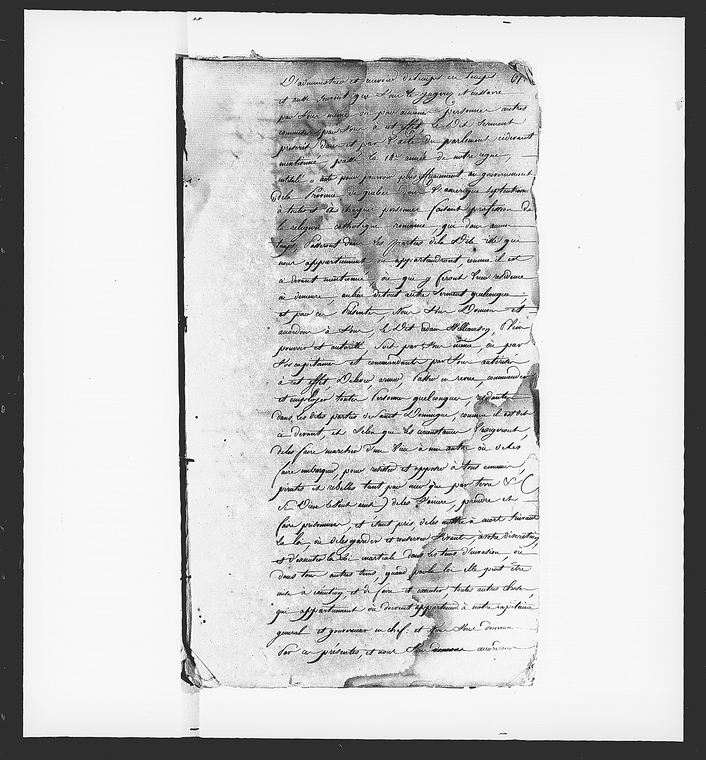 D'administrer et recevoir de temps en temps
et aussi souvent que Vous le jugerez Nécessaire
par Vous même ou par aucune personne autres
commises par Vous à cet effet, le Dit Serment
prescrit dans et par l'acte du parlement cidevant
mentionné, passé la 18e année de notre règne,
intitulé « acte pour pouvoir plus efficacement au gouvernement
de la Province de quebec dans l'amerique septentrionale
à toutes et à chaque personnes faisant profession de
la religion catholique romaine, qui dans aucun
temps Passeront dans les parties de la Dite isle qui
nous appartiennent ou appartiendront comme il est
ci devant mentionné ou qui y feront leur residence
ou demeure, au lieu de tout autre Serment quelconque,
et par ces Présentes Nous Vous Donnons et
accordons à Vous, le Dit adam Williamson, Plein
pouvoir et autorité soit par Vous même, ou par
Vos capitaines et commandants par Vous autorisés
à cet effet, De lever, armer, Passer en revue, commander
et employer toutes Personnes quelconques, residantes
dans les dites parties de saint Domingue, comme il est dit
ci devant, et selon que les circonstances l'exigeront
de les faire marcher d'un lieu à un autre ou de les
faire embarquer, pour resister et opposer à tous ennemis,
pirates et rebelles tant par mer que par terre &c (
Si Dieu le veut ainsi) de les Vaincre, prendre et
faire prisonniers, et étant pris, de les mettre à mort suivant
la loi, ou de les garder et conserver Vivants, à votre discretion,
et d'executer la loi martiale dans les tems d'invasion, ou
dans tous autres tems, quand par la loi elle peut être
mise à execution, et de faire et executer, toutes autres choses
qui appartiennent ou doivent appartenir à notre capitaine
general et gouverneur en chef: et Nous Vous donnons
Par ces présentes, et nous Vous accordons